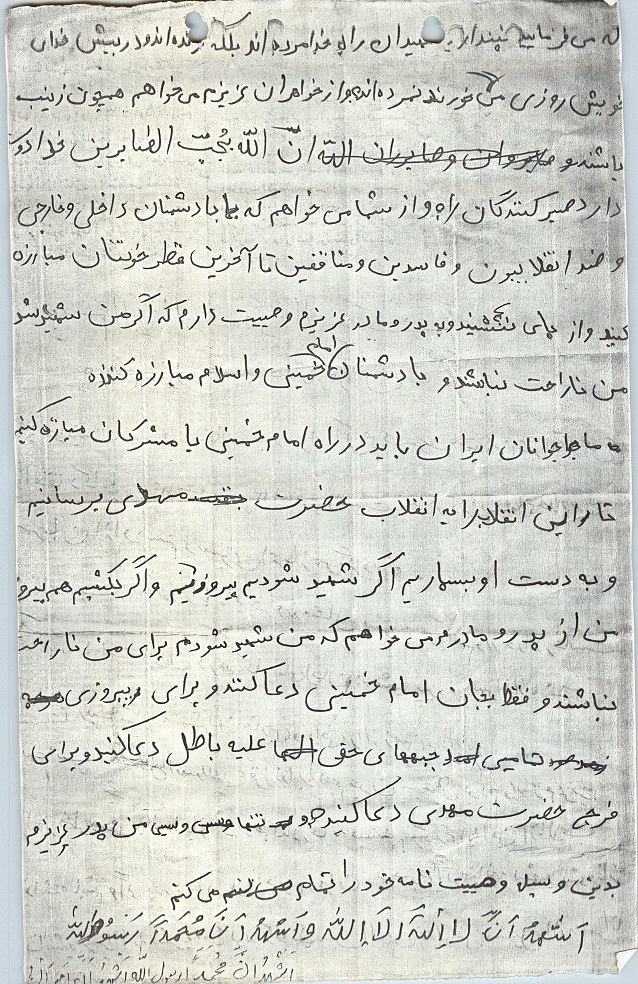 که می فرمایید نپندارید شهیدان راه خدا مرده اند بلکه زنده اند و در پیش خدای
خویش روزی می خورند نمرده اند و از خواهران عزیزم می خواهم همچون زینب
باشند و انّ اللّه یُحِبّ الصابرین خدا دوست
دارد صبر کنندگان را و از شما می خواهم که با دشمنان داخلی و خارجی
و ضد انقلابیون و فاسدین و منافقین تا آخرین قطر خونتان مبارزه
کنید و از پای ننشیند و به پدر و مادر عزیزم وصیت دارم که اگر من شهید شدم
من ناراحت نباشد و با دشمنان امام خمینی و اسلام مبارزه کنند
ما جوانان ایران باید در راه امام خمینی با مشرکان مبارزه کنیم
تا این انقلاب را به انقلاب حضرت مهدی برسانیم
و به دست او بسپاریم اگر شهید شودیم پیروزیم و اگر بکشیم هم پیروز
من از پدر و مادرم می خواهم که من شهید شودم برای من ناراحت
نباشند و فقط بجان امام خمینی دعا کنند و برای پیروزی
جبهه های حق علیه باطل دعا کنید و برای
فرج حضرت مهدی دعا کنید و تنها وسی من پدر عزیزم
بدین وسیله وصیت نامه خود را تمام می کنم
اَشهَدُ اَنَّ لا اِلهَ اِلاَ اللّه وَ اَشهَدُ اَنَّ مُحَمَداً رَسُولُ اللّه
اَشهَدُ انَّ مُحمَّداً رَسولُ اللّه اَشهَدُ